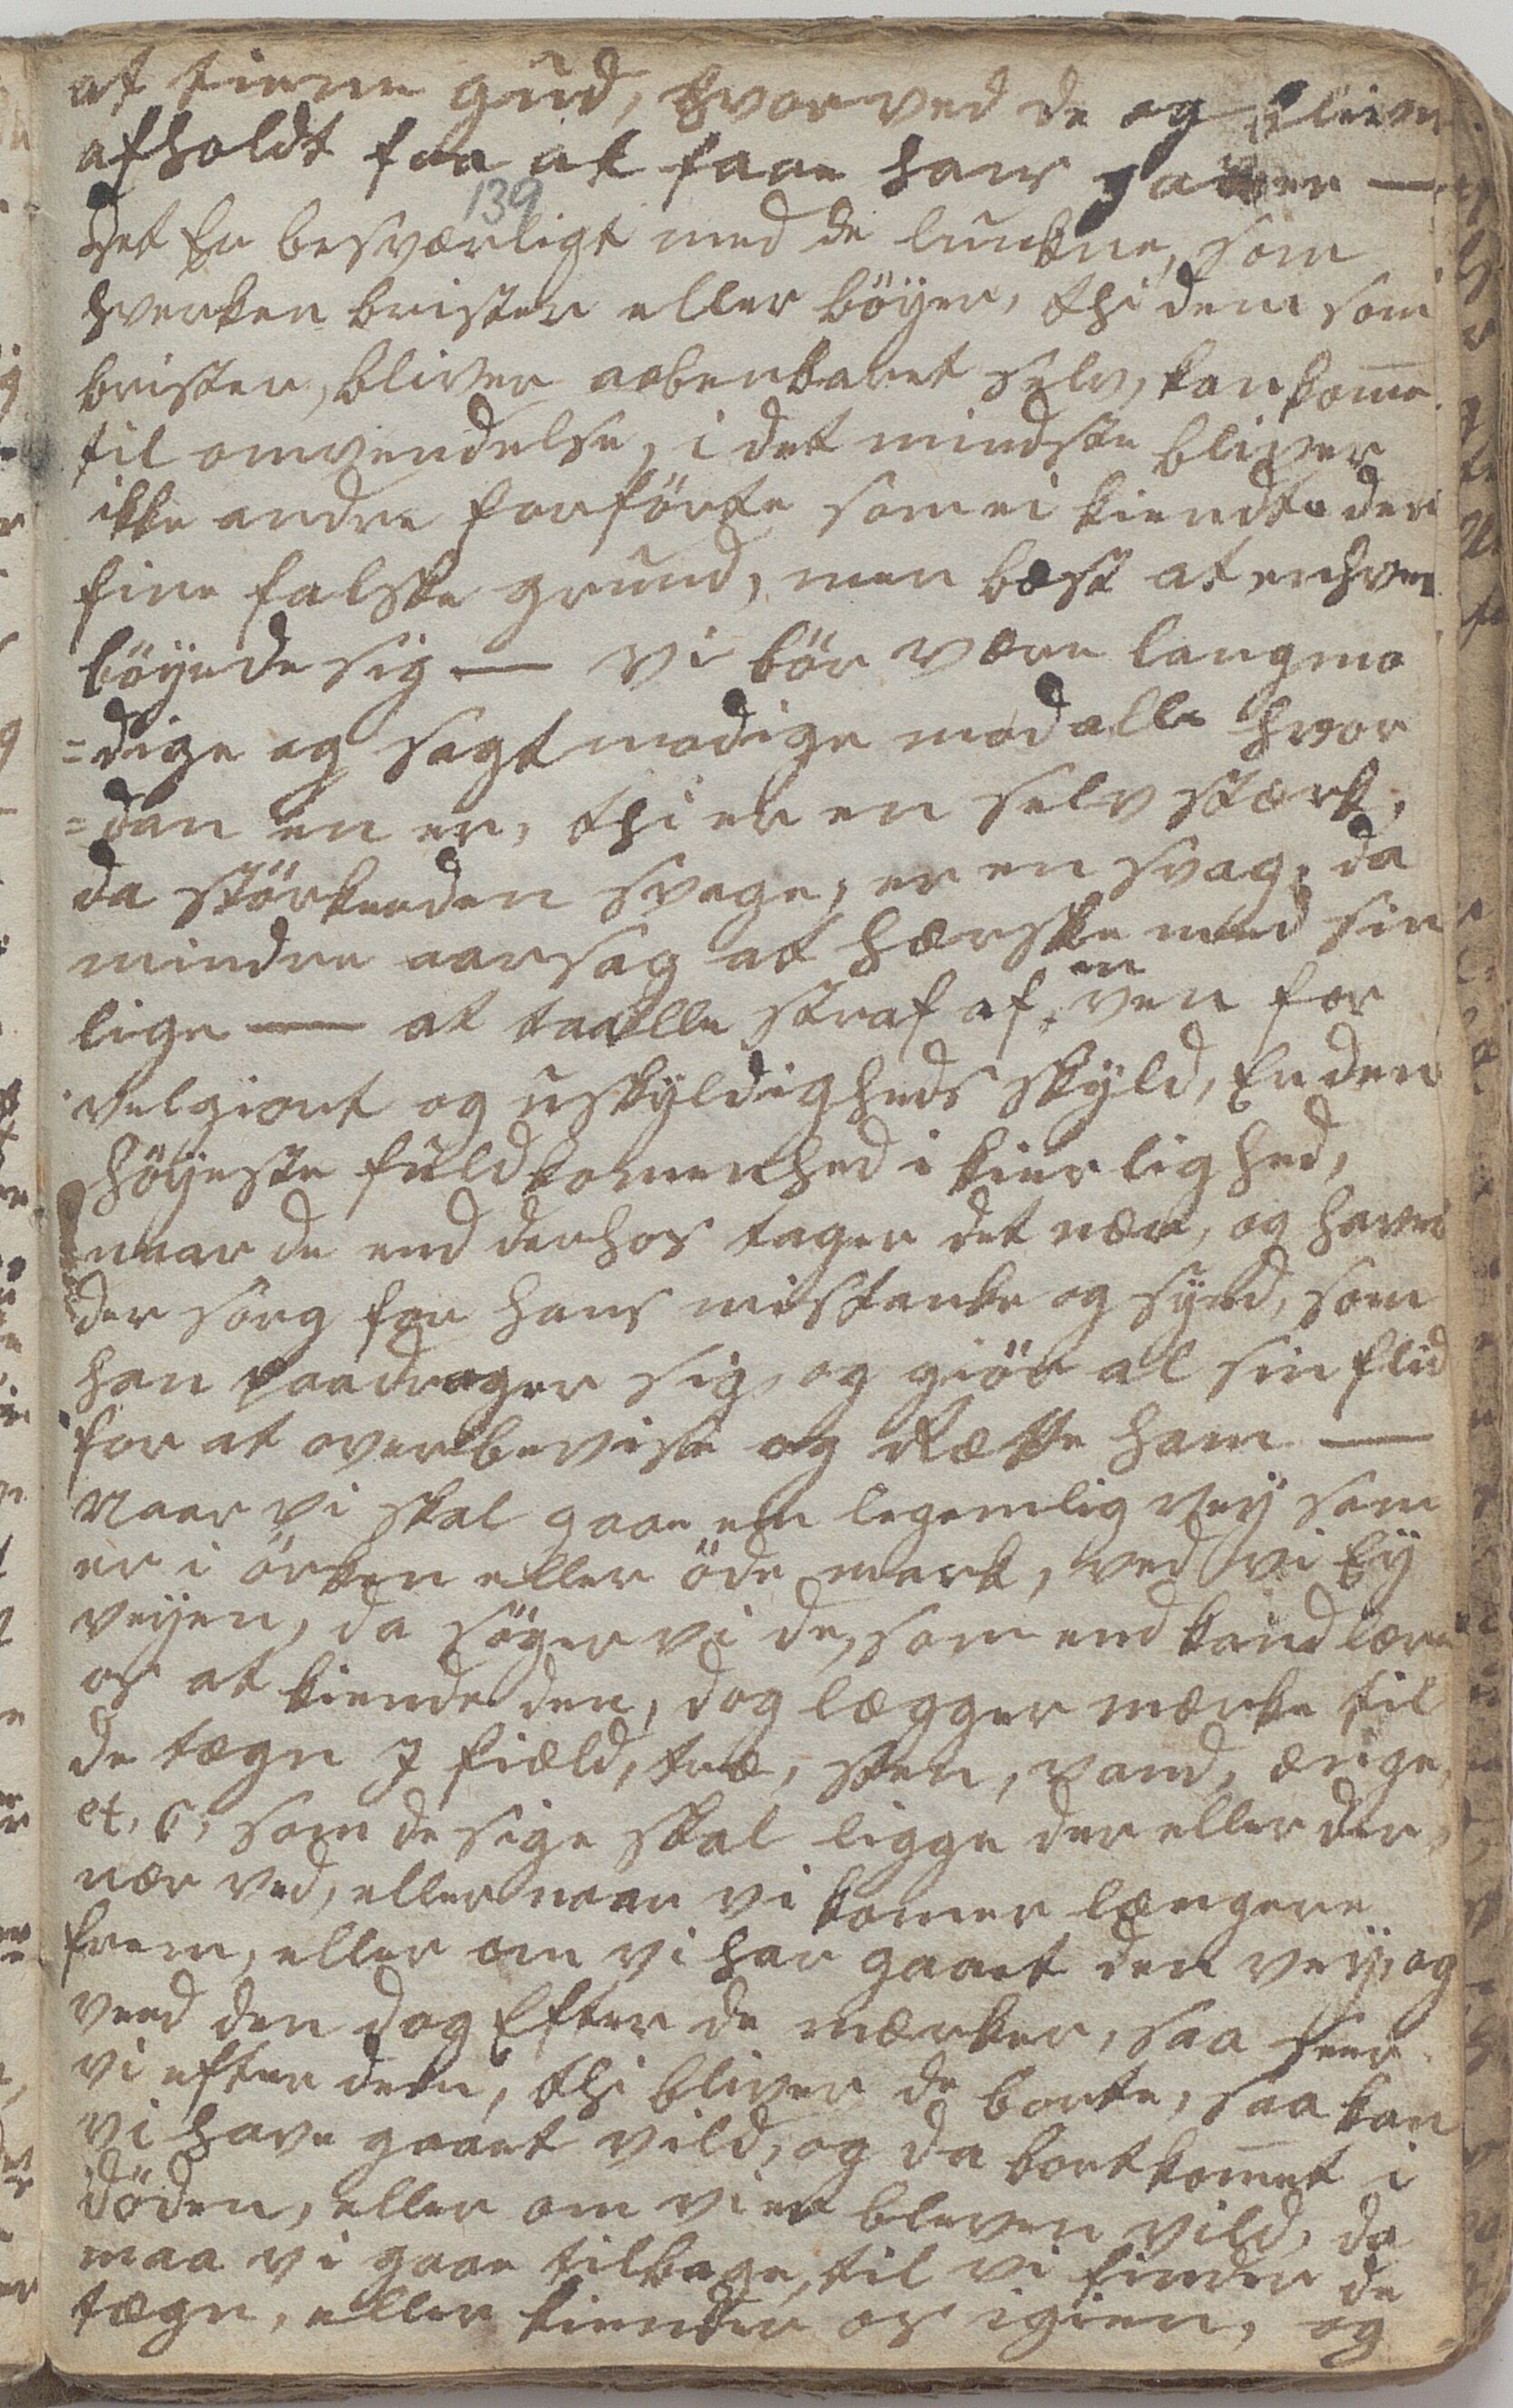 at tiene gud, hvorved de og bliver
afholdt fra at faae hans gaver —
139
Det Er besværligt med de lunkne, som
hverken brister eller böyer, thi dem som
brister, bliver aabenbaret selv, kan kom̄e
til omvendelse, i det mindste bliver
ikke andre forförte som ei kiendte den
fine falske grund, men bæst at enhver
böyede sig — vi bör være langmo
=dige og sagtmodige mod alle hvor
=dan en er, thi er en selv stærk,
da störke den svage, er en svag, da
mindre aarsag at hærske med sin
lige — at taalle straf af en ven for
velgiort og uskyldigheds skyld, Er den
höyeste fuldkomenhed i kierlighed,
naar de end derhos tager det nær, og haver
der sorg for hans mistanke og synd, som
han paadrager sig, og giör al sin flid
for at overbevise og Rætte ham —
Naar vi skal gaae en legemlig vey som
er i örken eller öde mark, ved vi Ey
veyen, da söger vi de, som end kand lære
os at kiende den, dog lægger mærke til
de tægn J fiæld, træ, sten, vand, ænge,
et, c, som de sige skal ligge der eller der,
nær ved, eller naar vi komer længere
frem, eller om vi har gaaet den vey, og
veed den dog Efter de mærker, saa seer
vi efter dem, thi bliver de borte, saa kan
vi have gaaet vild, og da bortkom̄et i
döden, eller om vi er bleven vild, da
maa vi gaae tilbage, til vi finder de
tægn, eller kiender os igien, og